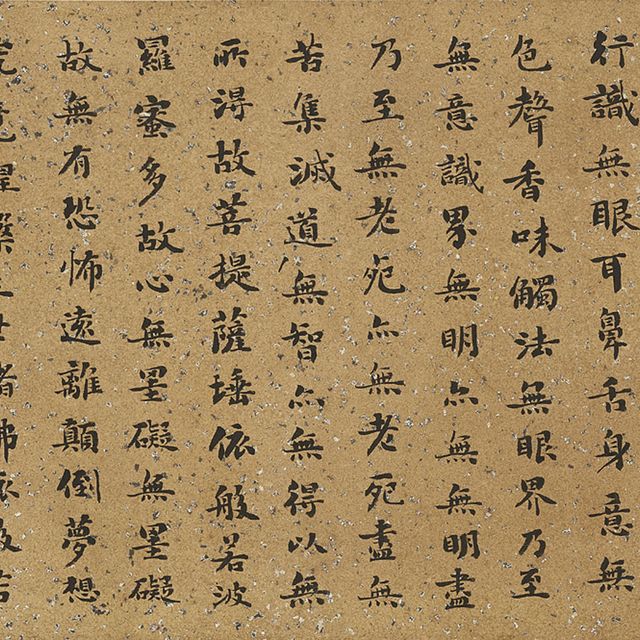 行識無眼耳鼻舌身意無
色聲香味觸法無眼界乃至
無意識界無明亦無無明盡
乃至無老死亦無老死盡無
苦集滅道無智亦無得以無
所得故菩提薩埵依般若波
羅蜜多故心無罣礙無罣礙
故無有恐怖遠離顛倒夢想
究竟涅槃三世諸佛依般若